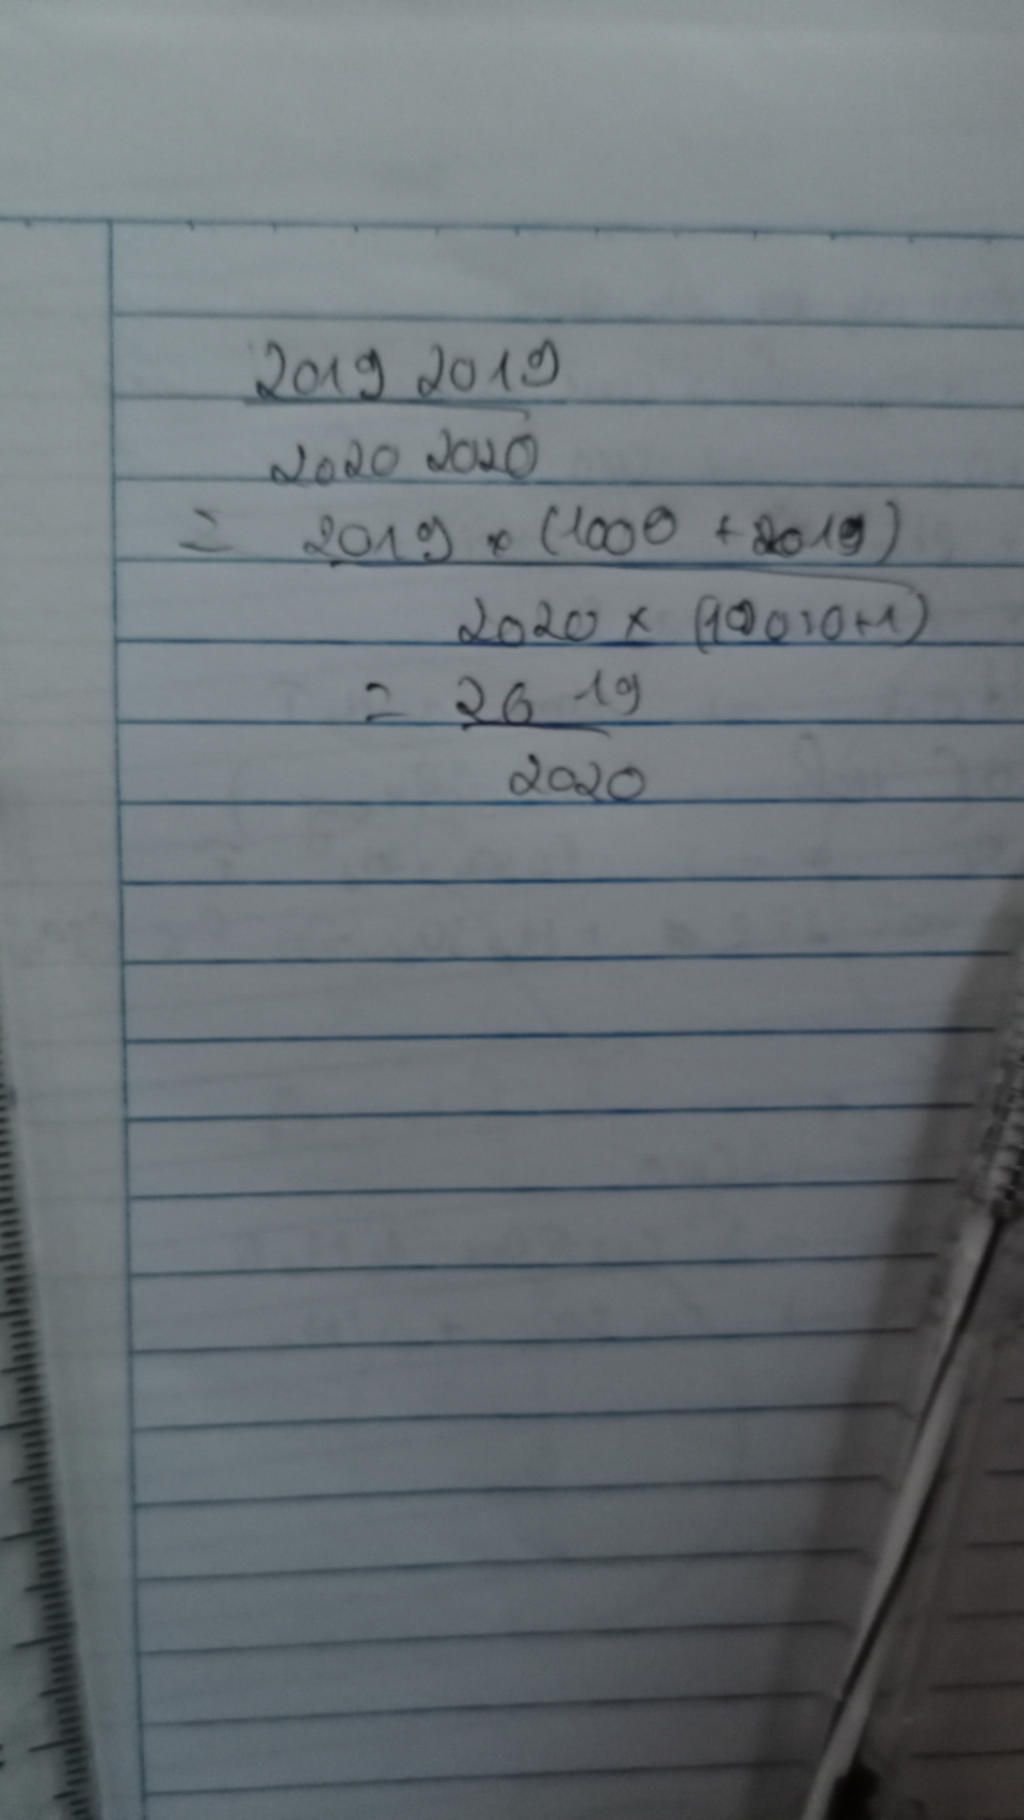 2019 2019
2020 2020
= 2019 × (1000 + 2019)
2020 × (10000+1)
= 20 19
2020